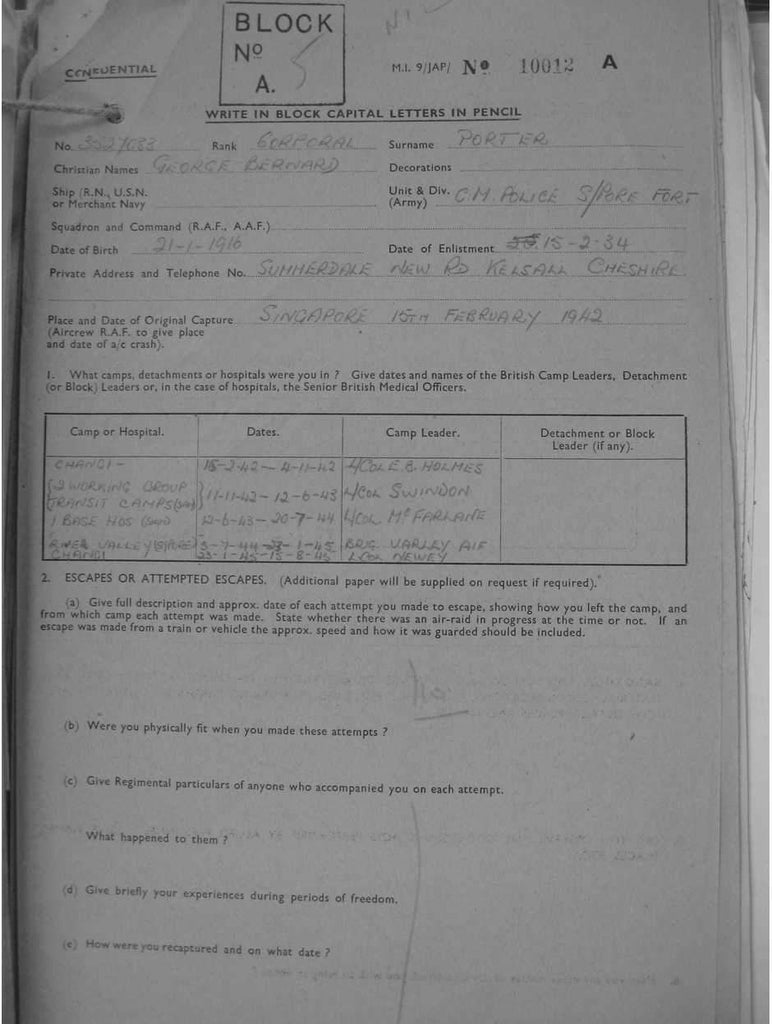 BLOCK
No
A. 5
CONFIDENTIAL
M.I. 9/JAP/ No 10012 A
WRITE IN BLOCK CAPITAL LETTERS IN PENCIL
No. Rank CORPORAL Surname PORTER
Christian Names GEORGE BERNARD Decorations
Ship (R.N., U.S.N. or Merchant Navy Unit & Div. (Army) C.M. POLICE S/PORE FORT
Squadron and Command (R.A.F., A.A.F.)
Date of Birth 21-1-1916 Date of Enlistment 15-2-34
Private Address and Telephone No. SUMMERDALE NEW RD KELSALL CHESHIRE
Place and Date of Original Capture SINGAPORE 15TH FEBRUARY 1942
(Aircrew R.A.F. to give place
and date of a/c crash).
1. What camps, detachments or hospitals were you in ? Give dates and names of the British Camp Leaders, Detachment
(or Block) Leaders or, in the case of hospitals, the Senior British Medical Officers.
Camp or Hospital. Dates. Camp Leader. Detachment or Block Leader (if any).
CHANGI - 15-2-42 - 4-11-42 L/COL E.B. HOLMES
2 WORKING GROUP
TRANSIT CAMPS (SIAM) 11-11-42 - 12-6-43 L/COL SWINDON
1 BASE HOS (SIAM) 12-6-43 - 20-7-44 L/COL McFARLANE
RIVER VALLEY (S/PORE) 3-7-44 - 23-1-45 BRIG. VARLEY AIF
CHANGI 23-1-45 - 15-8-45 L/COL NEWEY
2. ESCAPES OR ATTEMPTED ESCAPES. (Additional paper will be supplied on request if required).
(a) Give full description and approx. date of each attempt you made to escape, showing how you left the camp, and
from which camp each attempt was made. State whether there was an air-raid in progress at the time or not. If an
escape was made from a train or vehicle the approx. speed and how it was guarded should be included.
(b) Were you physically fit when you made these attempts ?
(c) Give Regimental particulars of anyone who accompanied you on each attempt.
What happened to them ?
(d) Give briefly your experiences during periods of freedom.
(e) How were you recaptured and on what date ?